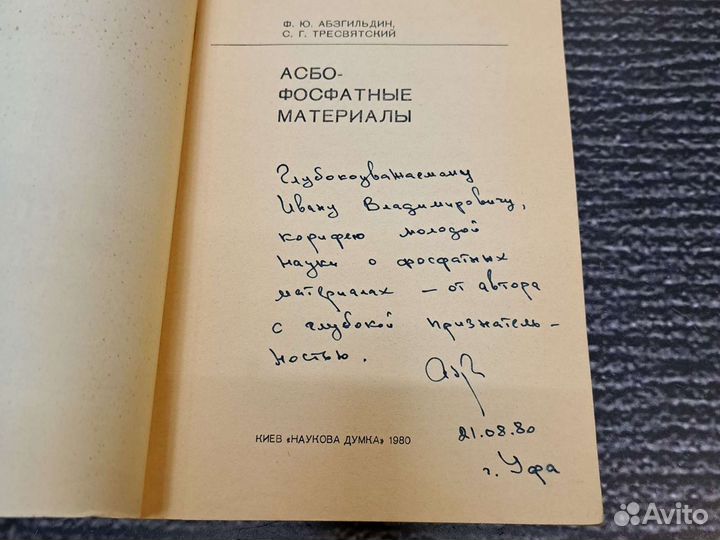 Ф. Ю. АБЗГИЛЬДИН,
С. Г. ТРЕСВЯТСКИЙ
АСБО-
ФОСФАТНЫЕ
МАТЕРИАЛЫ
Глубокоуважаемому
Ивану Владимировичу,
корифею молодой
науки о фосфатных
материалах – от автора
с глубокой признатель-
ностью.
21.08.80
г. Уфа
КИЕВ «НАУКОВА ДУМКА» 1980
Avito